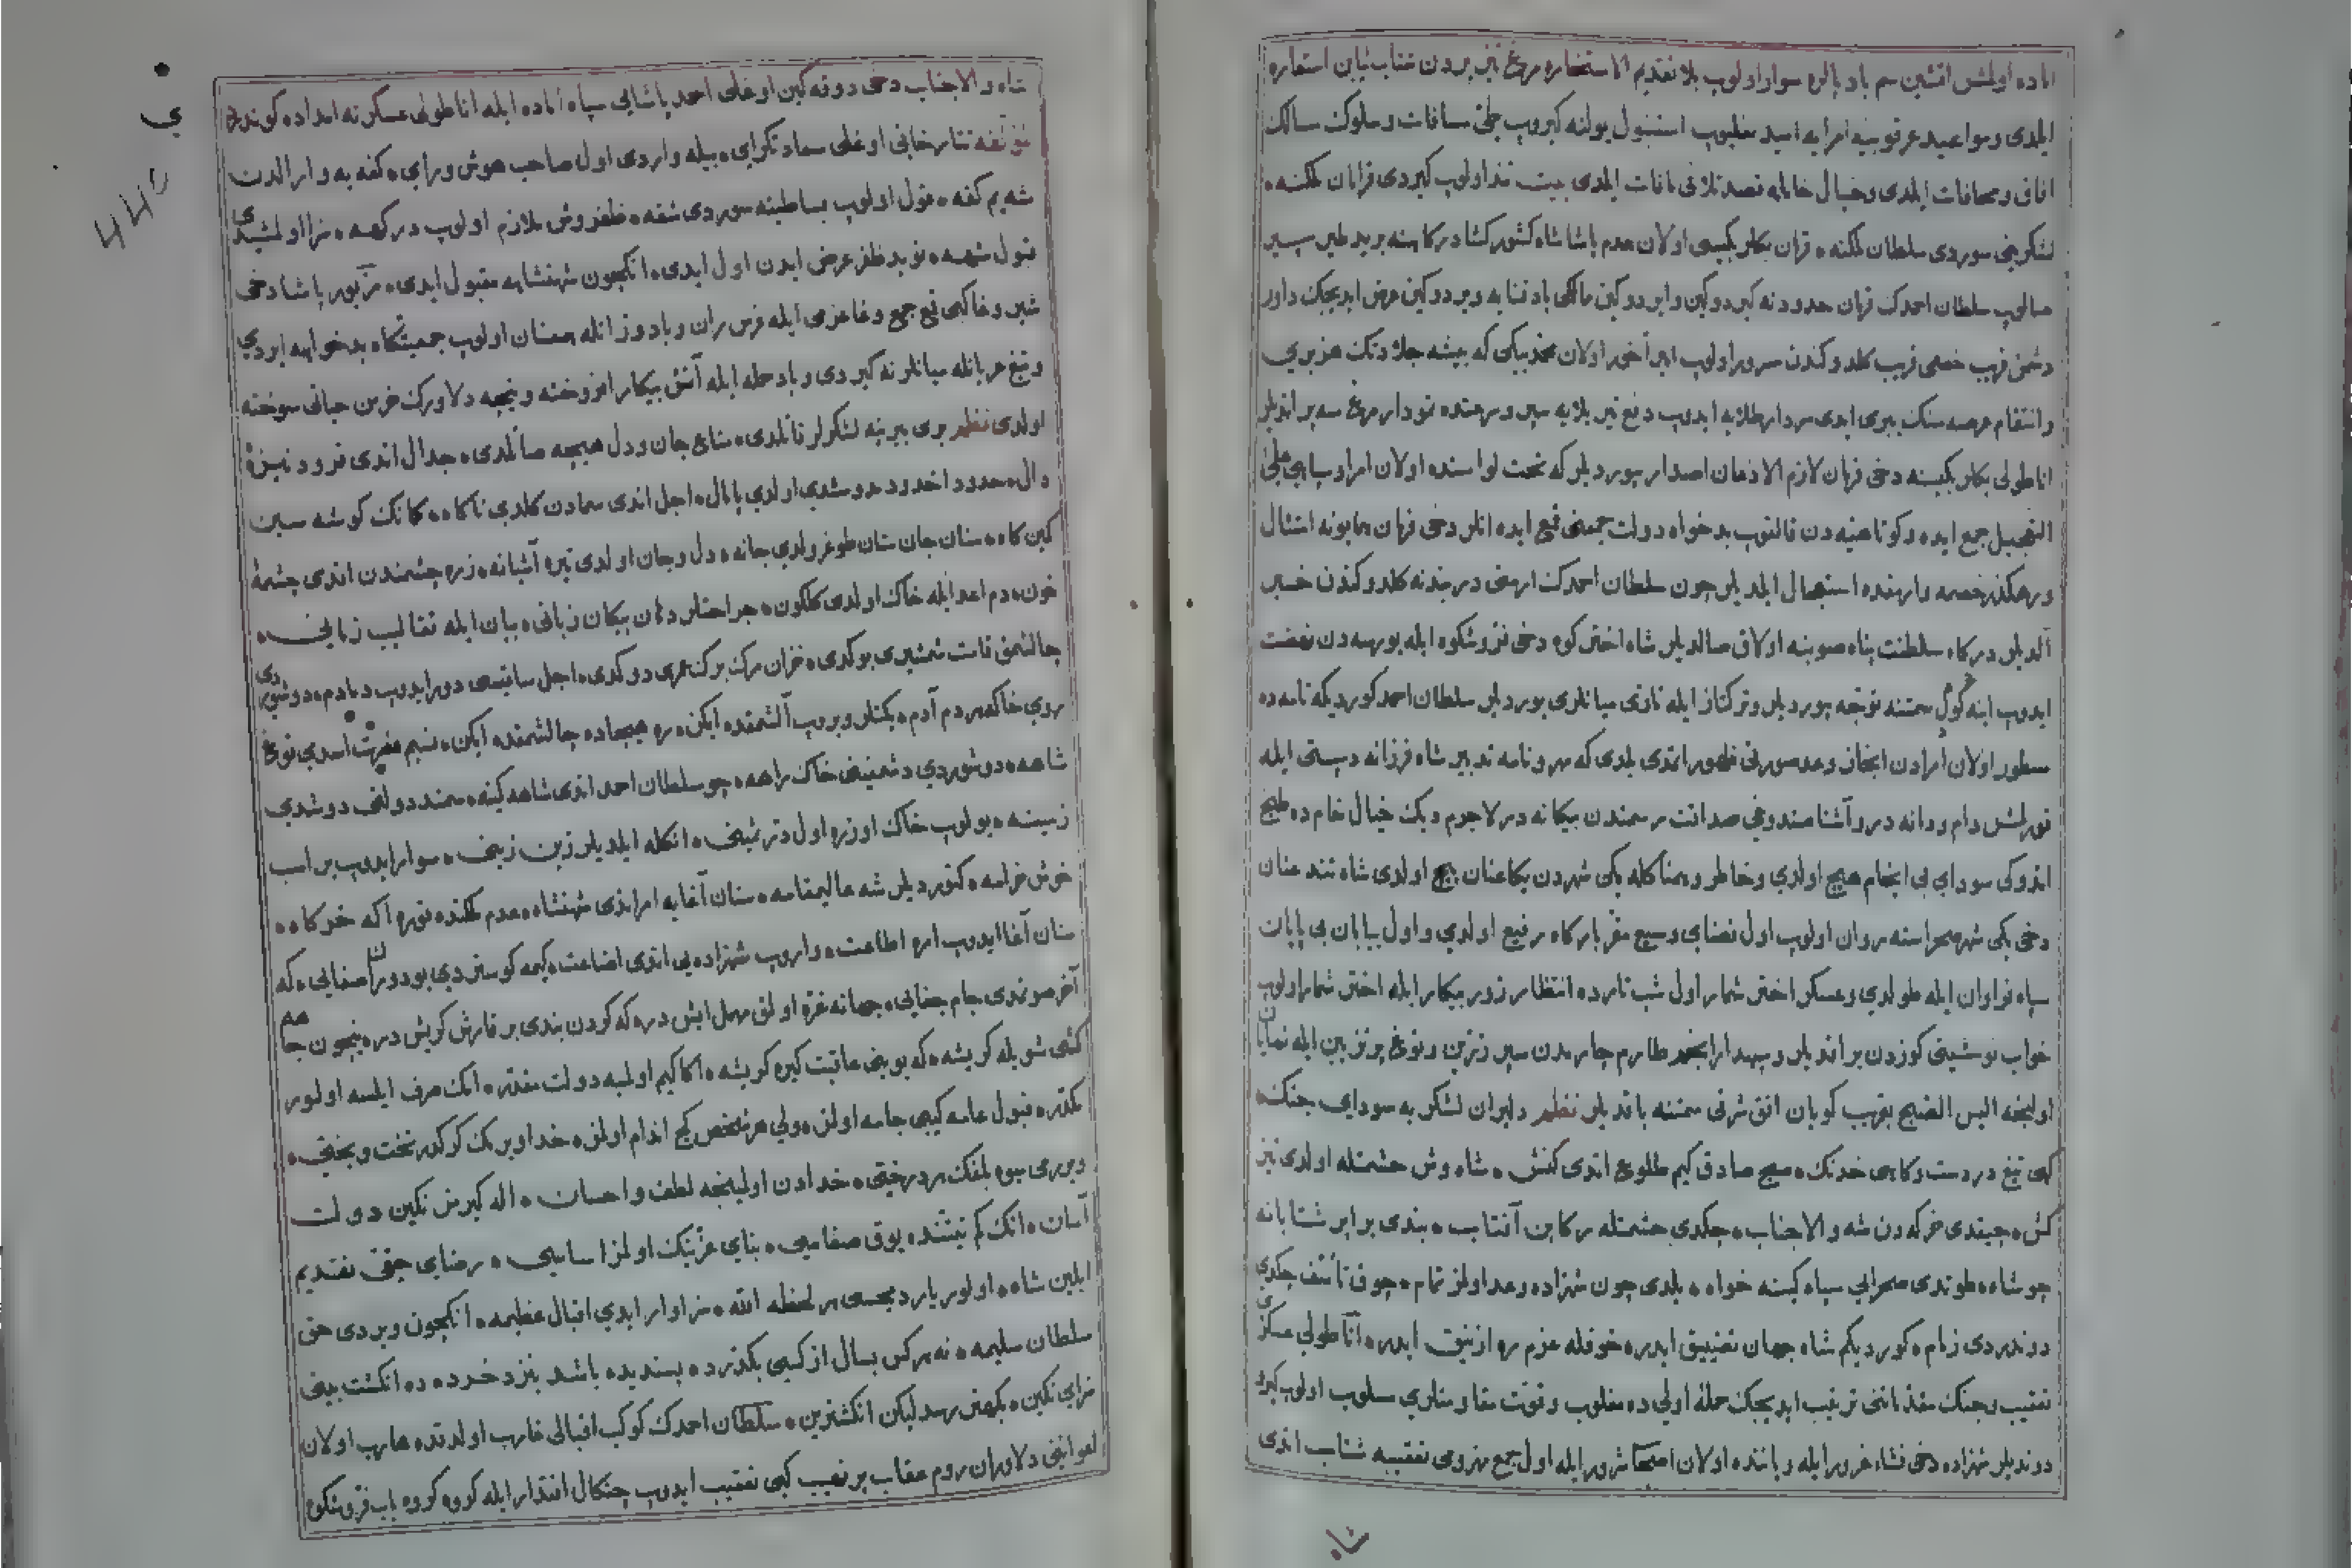 اماده اولمش افشین سم باد بالره سوار اولوب بلا تقدیم الاستخاره مرغ تیز پردن عتاب استعاره
ایلدی ومواعید عرقوبیه امرایه امید استنبول یولنه کیروب طی مسافات وسلوک مسالک
افاق ومحافات ایلدی وخیال خامله قصد تلافی مافات ایلدی بیت تند اولوب کیردی فرمان ملکنه
لشکرینی سوردی سلطان ملکنه قرمان بکلربکیسی اولان همدم پاشا شاه کشورکشا درکاهنه برید طیر سیر
صالوب سلطان احمدک قرمان حدودنه کیردوکین وایردوکین عرض ایدیجک داور
دشمن قریب خصمی قریب کلدوکندن خبردار اولوب امیر آخور اولان محمد بیکی که بیشه جلادتک هزبری
وانتقام عرصه سنک ببری ایدی سردار طلایه ایدوب دفع تیر بلایه سپر
اناطولی بکلربکیسنه دخی فرمان لازم الاذعان اصدار بیوردیلر که تحت لواسنده اولان امرا وسپاهی علی
التعجیل جمع ایده وکوتاهیه دن قالقوب بدخواه دولت جمعنی قمع ایده انلر دخی فرمان همایونه امتثال
ورهکذر خصمه وارمغده استعجال ایلدیلر چون سلطان احمدک ارمنی دربندنه کلدوکندن خبر
آلدیلر درکاه سلطنت پناه صوبنه اولاق صالدیلر شاه اختر کوه دخی فر وشکوه ایله بورسه دن نهضت
ایدوب اینه کول سمتنه توجه بیوردیلر وترکتاز ایله سلطان احمد کوردیکه نامه ده
مسطور اولان امرادن انجاز وعد صورتی ظهور اتمدی بلدی که مهر ونامه تدبیر شاه فرزانه دستی ایله
قورلمش دام ودانه در وآشنا صندوغی صداقت رسمندن بیکانه در لاجرم دیک خیال خامده طبخ
اتدوکی سودای بی انجام هیچ اولدی یکی شهردن اولدی شاه تند عنان
دخی یکی شهر صحراسنه روان اولوب اول فضای وسیع مقر بارکاه رفیع اولدی واول بیابان بی پایان
سپاه فراوان ایله طولدی وعسکر اختر شمار اول شب تارده انتظار روز پیکار ایله اختر شمار اولوب
خواب نوشینی کوزدن براقدیلر وسپهدار انجم طارم چارمدن سپر زرین وتوغ پرنز بین ایله نمایان
اولنجه الیس الصبح بقریب کویان افق شرقی سمتنه باقدیلر نظم دلیران لشکر به سودای جنک
کهی تیغ در دست وکاهی خدنک صبح صادق کیم طلوع اتدی کنش شاه وش حشمتله اولدی تیز
کش چیقدی خرکه دن شه والاجناب چکدی حشمتله رکابن آفتاب بندی برابر شتابانه
چو شاه طوتدی صحرایی سپاه کینه خواه بلدی چون شهزاده وعد اولمز تمام چوق تأسف چکدی
دوندردی زمام کوردیکم شاه جهان تضییق ایدر خوفله عزم ره ازنیق ایدر اناطولی عسکری
تعقیب وجنک ترتیب ایدیجک حمله اولی ده مغلوب وقوت مقاومتلری مسلوب اولوب کیرو
دوندیلر شهزاده دخی نشاء غرور ایله ویاننده اولان شرور ایله اول جمع مهزومی تعقیبه شتاب اتدی
شاه
شاه والاجناب دخی دوقه کین اوغلی احمد پاشایی سپاه اماده ایله اناطولی عسکرنه امداده کوندردی
لمؤلفه تتار خانی اوغلی سعادتکرای بیله واردی اول صاحب هوش ورای کفه یه وارالدن
شه یم کفه قول اولوب بساطینه سوردی شفه ظفروش ملازم اولوب درکهه سزا اولمشیدی
قبول شهه نوید ظفر عرض ایدن اول ایدی انکچون شهنشاهه مقبول ایدی مزبور پاشا دخی
شیر وغا کبی قمع جمع وغا عزمی ایله فرس ران وباد وزانله همعنان اولوب جمعیتکاه بدخواهه ایردی
وتیغ عریانله میانلرنه کیردی وباد حمله ایله آتش پیکار افروخته ونیجه دلاورک خرمن حیاتی سوخته
اولدی نظم بری بیرینه لشکرلر قاتلدی متاع جان ودل هیچه صاتلدی جدال اتدی فرود نیزۀ
دال حدود اخدود اولدی پامال اجل اتدی سمادن کلدی ناکاه کمانک کوشه سین
کمین کاه سنان جان ستان طوغرولدی جانه دل وجان اولدی تیره آشیانه زره چشمندن اتدی چشمۀ
خون دم اعدایله خاک اولدی کلکون جراحتلر دهان پیکان زبانی بیان ایله تقالیب زمانی
چالشمق قامت شمشیری بوکدی خزان مرک برک عمری دوکدی اجل ساقیسی دور ایدوب دمادم دوشوردی
روی خاکه هر دم آدم یکتلر ویروب آلشمقده ایکن ره هیجاده چالشمقده ایکن نسیم نصرت اسدی توغ
شاهه دوشوردی دشمنینی خاک راهه چو سلطان احمد اتدی شاهد کینه سمند دولتی دوشدی
زمینه بولوب خاک اوزره اول در ثمینی انکله ایلدیلر زین زینی سوار ایدوب بر اسب
خوش خرامه کتوردیلر شه عالیمقامه سنان آغایه امر اتدی شهنشاه عدم ملکنده قوره اکه خرکاه
سنان آغا ایدوب امره اطاعت واروب شهزاده یی اتدی اضاعت کیمه کوستردی بو دوران صفایی که
آخر صوندی جام جفایی جهانه غره اولمق سهل ایش در که کردن بندی بر قارش کریش در نیچون جاهم
کشی شویله کریشه که بوینی عاقبت کیره کریشه اکا کیم اولمیه دولت مقدر امک صرف ایلسه اولور
مکدر قبول عامه کیبی جامه اولمز ولی هر شخص کچ اندام اولمز خدا ویرمک کرکدر تخت وبختی
ویررمی میوه بلمکک هر درختی خدادن اولمینجه لطف واحسان اله کیرمز نکین دولت
آسان انک کم نیتنده یوق صفاسی بنای عزتنک اولمز اساسی رضای حقی تقدیم
ایلین شاه اولور یاردیمجیسی هر لحظه الله سزاوار ایدی اقبال عظیمه انکچون ویردی حق
سلطان سلیمه نه هر کس بسال از کسی بکذرد پسندیده باشد بنزد خرد ده انکشت بینی
سزای نکین بکهتر رسد لیکن انکشترین سلطان احمدک کوکب اقبالی غارب اولدقده هارب اولان
دلاوران روم عقاب پر نهیب کبی تعقیب ایدوب چنکال اقتدار ایله کروه کروه باب فر وشکوه